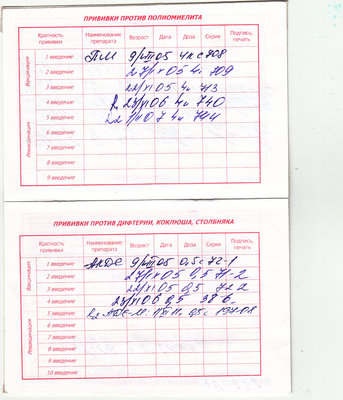 ПРИВИВКИ ПРОТИВ ПОЛИОМИЕЛИТА
Кратность прививки Наименование препарата Возраст Дата Доза Серия Подпись, печать
Вакцинация
1 введение ПМ 9/VIII 05 4к с 708
2 введение 27/X 05 4к 709
3 введение 22/XI 05 4к 713
4 введение R 23/XI 06 4к 740
Ревакцинация
5 введение R2 07 4к 744
6 введение
7 введение
8 введение
9 введение
ПРИВИВКИ ПРОТИВ ДИФТЕРИИ, КОКЛЮША, СТОЛБНЯКА
Кратность прививки Наименование препарата Возраст Дата Доза Серия Подпись, печать
Вакцинация
1 введение АКДС 9/VIII 05 0,5 с 72-1
2 введение 27/X 05 0,5 71-2
3 введение 22/XI 05 0,5 72 2
4 введение 23/XI 06 0,5 38 6
Ревакцинация
5 введение R2 АДС-М
6 введение
7 введение
8 введение
9 введение
10 введение